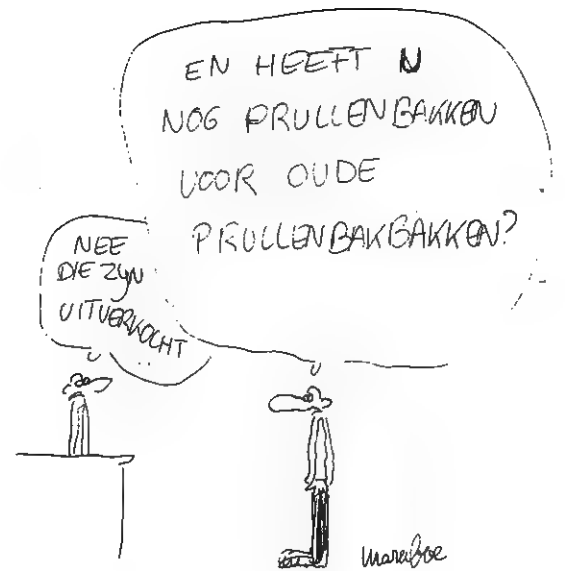 EN HEEFT U
NOG PRULLENBAKKEN
VOOR OUDE
PRULLENBAKBAKKEN?
NEE
DIE ZIJN
UITVERKOCHT